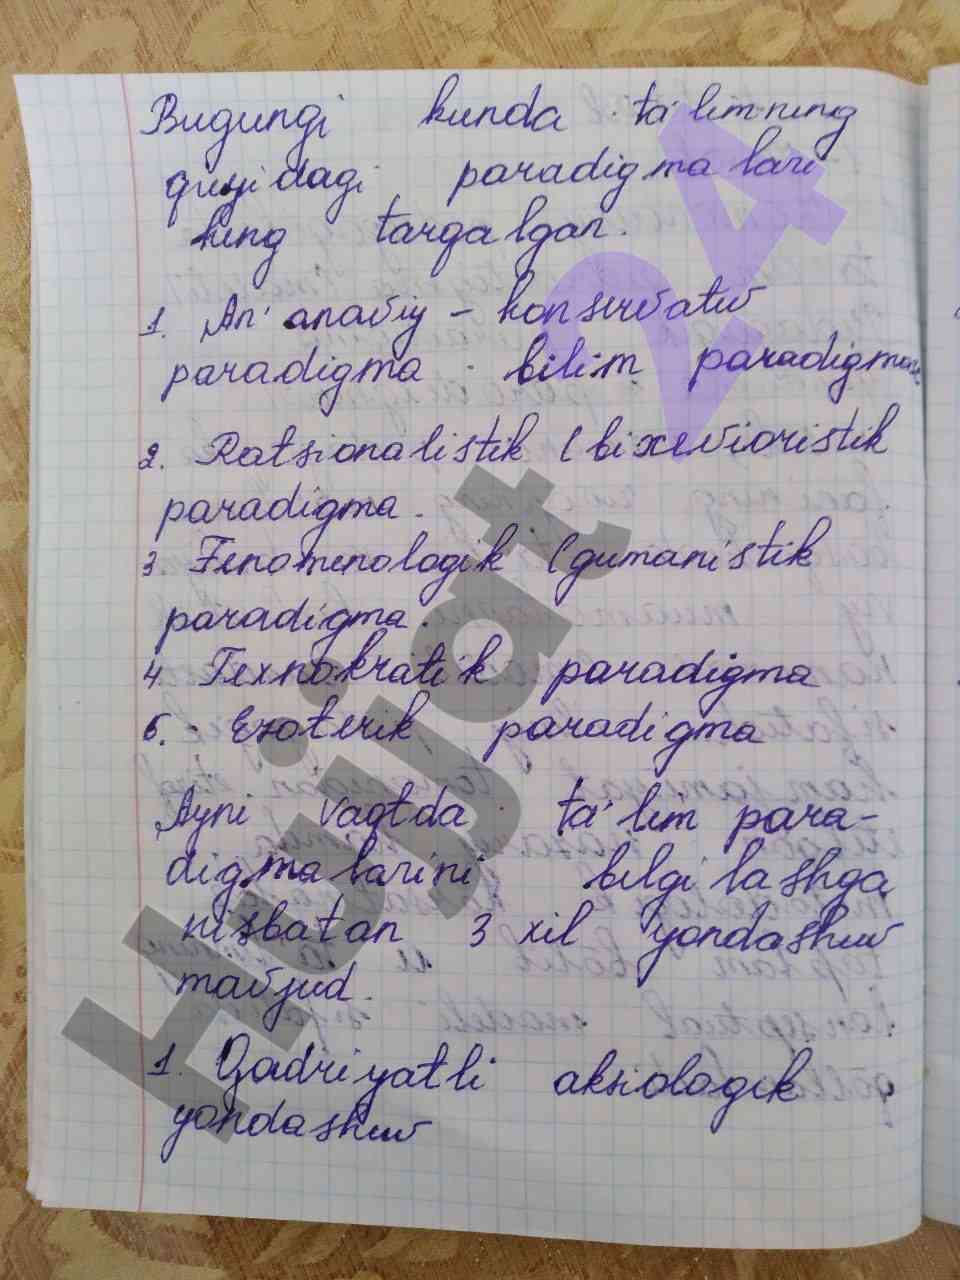 Bugungi kunda ta'limning
quyidagi paradigmalari
keng tarqalgan.
1. An'anaviy - konservativ
paradigma - bilim paradigmasi
2. Ratsionalistik (bixevioristik
paradigma.
3 Fenomenologik (gumanistik
paradigma.
4 Texnokratik paradigma
5. Ezoterik paradigma
Ayni vaqtda ta'lim para-
digmalarini belgilashga
nisbatan 3 xil yondashuv
mavjud.
1. Qadriyatli aksiologik
yondashuv
Hujjat 24